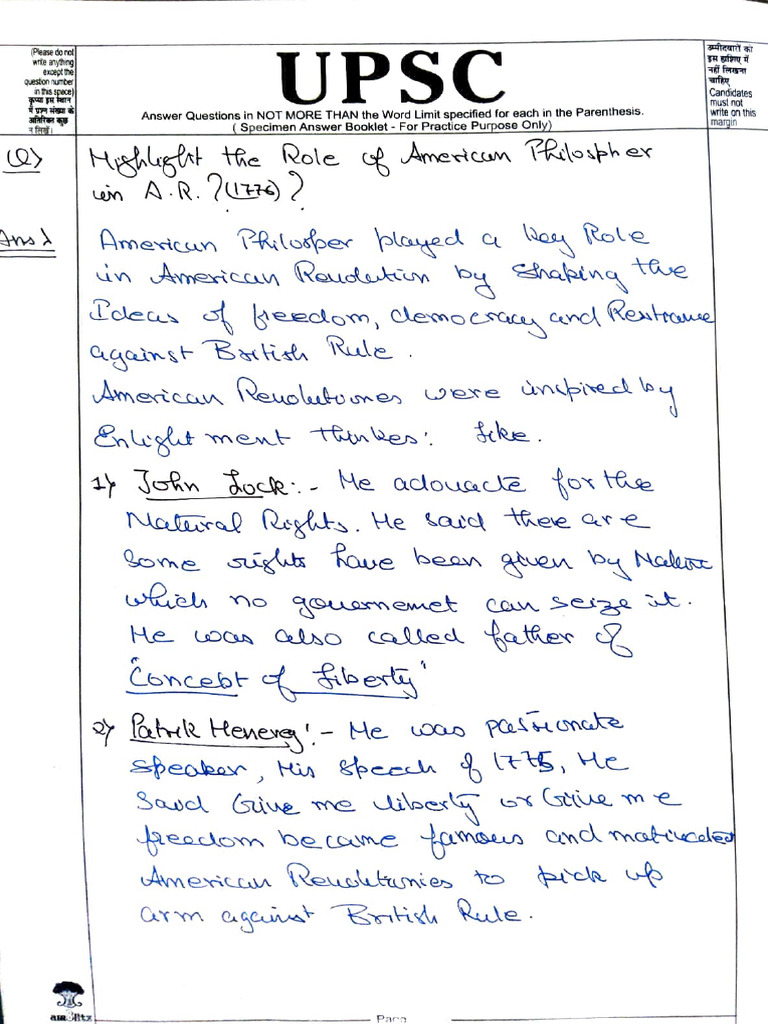 (Please do not
write anything
except the
question number
in this space)
कृपया इस स्थान
में प्रश्न संख्या के
अतिरिक्त कुछ
न लिखें।
UPSC
Answer Questions in NOT MORE THAN the Word Limit specified for each in the Parenthesis.
( Specimen Answer Booklet - For Practice Purpose Only)
उम्मीदवारों को
इस हाशिए में
नहीं लिखना
चाहिए
Candidates
must not
write on this
margin
Q) Highlight the Role of American Philospher
in A.R.? (1776)?
Ans) American Philosper played a key Role
in American Revolution by shaping the
Ideas of freedom, democracy and Restrance
against British Rule.
American Revolutiones were inspired by
Enlightment thinkes: Like.
1) John Lock:- He adovacte for the
Natural Rights. He said there are
some rights have been given by Nature
which no governemet can seize it.
He was also called father of
"Concept of Liberty"
2) Patrik Henerey:- He was passionate
speaker, His speech of 1775, He
said Give me liberty or Give me
freedom became famous and motivated
American Revolutunies to pick up
arm against British Rule.
Page